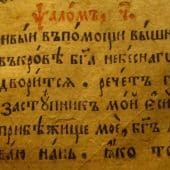 Ѱаломъ, ч҃.
ивыи въпомощи вышн
въкровѣ бг҃а небеснаг
дворитсѧ . речетъ г
заступникъ мой еси
прибѣжище мое, бг҃ъ
ваю нань . ꙗко то